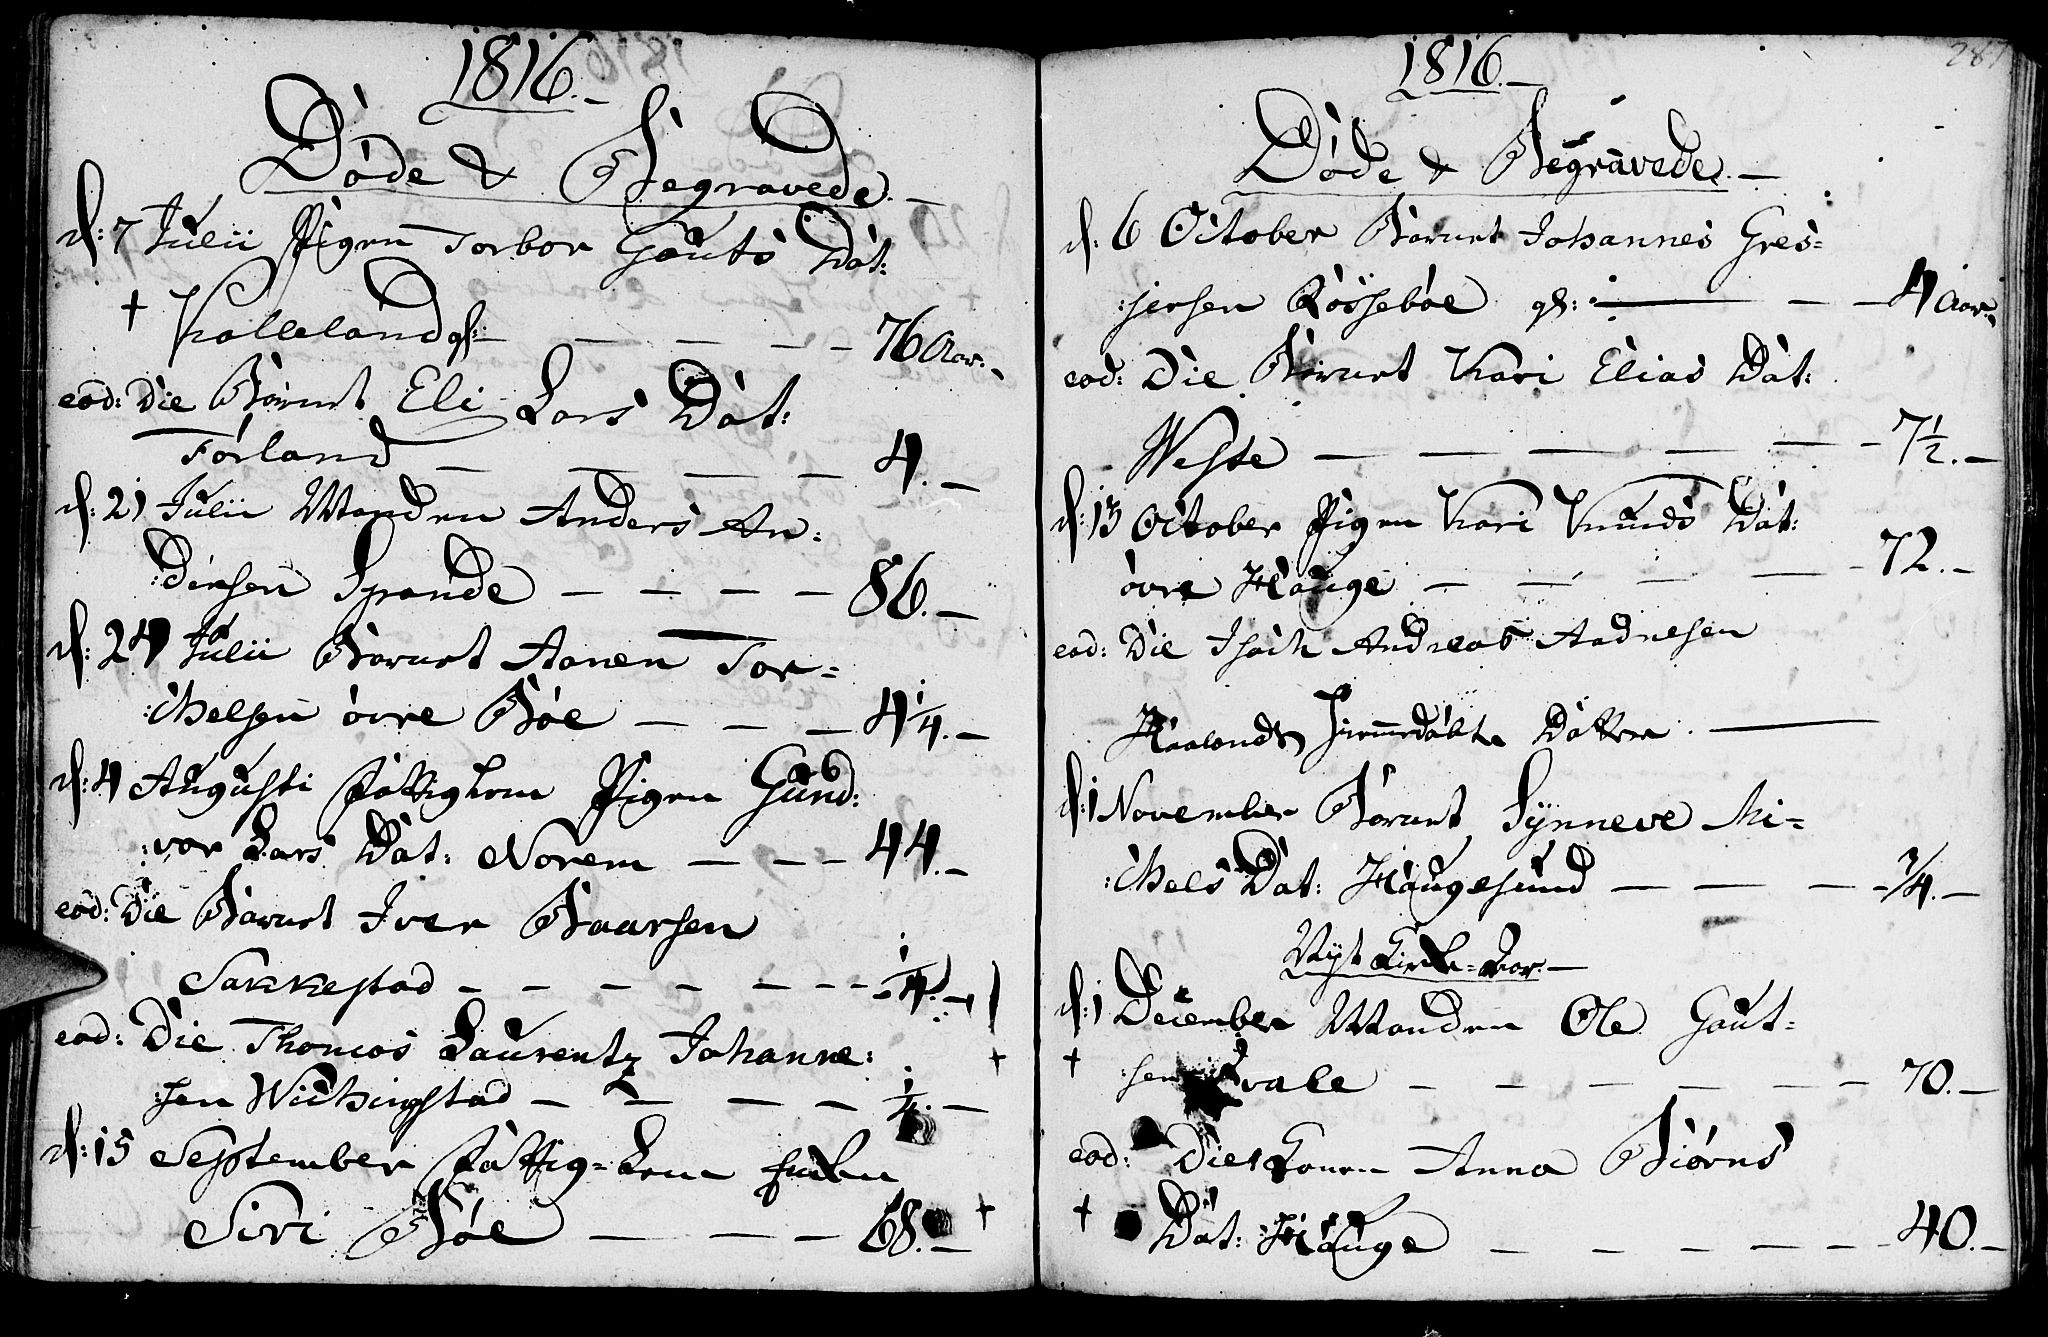 1816.
Døde & Begravede.
d: 7 Julii Pigen Torbor Gauts Dat:
+ Kalleland gl: — 76 Aar.
eod: Die Barnet Eli Lars Dat:
Førland — 4.
d: 21 Julii Manden Anders An=
:dersen Spande — 86.
d: 24 Julii Barnet Aanen Tor=
:chelsen øvre Bøe — 4 1/4.
d: 4 Augusti Fattiglem Pigen Gund:
:vor Lars Dat: Norem — 44.
eod: Die Barnet Iver Baarsen
Sakkestad — 1/4.
eod: Die Thomas Laurentz Johanne:
:sen Wichingstad — 1/4.
d: 15 September Fattig=Lem Enken
Siri Bøe — 68. +
1816.
287
Døde & Begravede.
d: 6 October Barnet Johannes Gres=
:jersen Røssebøe gl: — 4 Aar.
eod: Die Barnet Kari Elias Dat:
Weste — 7 1/2.
d: 13 October Pigen Kari Knuds Dat:
øvre Hauge — 72.
eod: Die Isach Andreas Aadnesen
Haalands hiemdøbte Datter.
d: 1 November Barnet Synneve Mi=
:chels Dat: Haugesund — 3/4.
Nyt Kirke=Aar.
d: 1 December Manden Ole Gaut=
+ :sen Kvale — 70.
eod: Die Konen Anna Biørns
+ Dat: Hauge — 40.